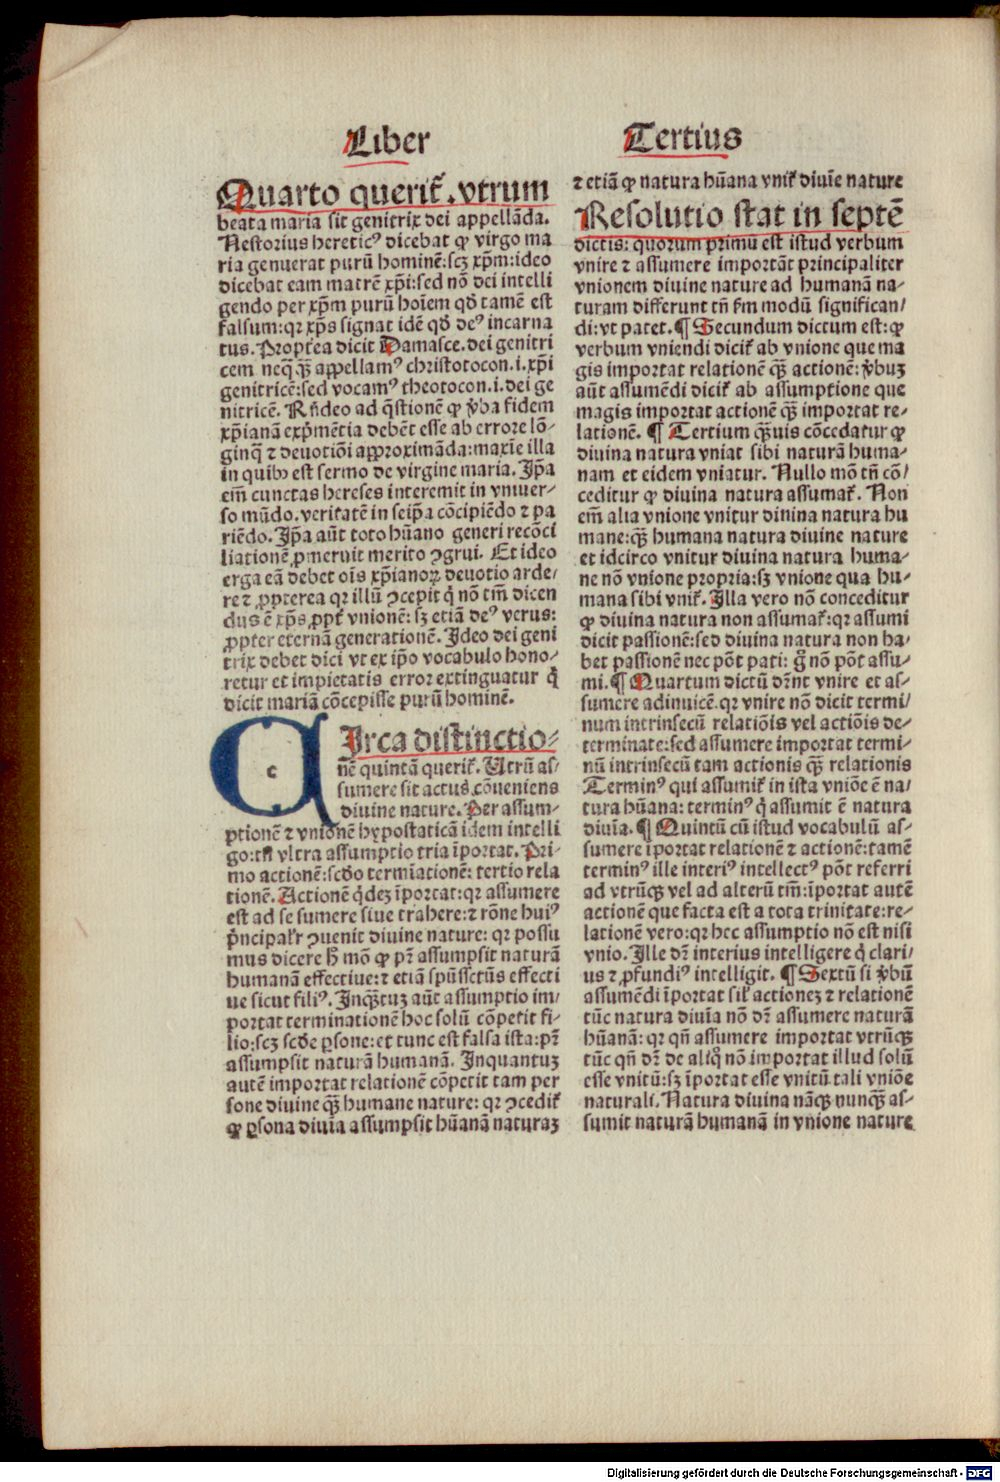 Liber
Quarto querit᷑. vtrum
beata maria sit genitrix dei appellāda.
Nestorius hereticꝰ dicebat ꝙ virgo ma
ria genuerat purū hominē: scꝫ xp̄m: ideo
dicebat eam matrē xp̄i: sed nō dei intelli
gendo per xp̄m purū hoīem qd̄ tamē est
falsum: qꝛ xp̄s signat idē qd̄ deꝰ incarna
tus. Propterea dicit Damasce. dei genitri
cem neqꝫ̄ appellamꝰ christotocon .i. xp̄i
genitricē: sed vocamꝰ theotocon .i. dei ge
nitricē. Rn̄deo ad q̄stionē ꝙ v̄ba fidem
xp̄ianā exp̄mētia debēt esse ab errore lō-
ginq̄ ⁊ deuotiōi approximāda: maxīe illa
in quibꝰ est sermo de virgine maria. Ip̄a
em̄ cunctas hereses interemit in vniuer-
so mūdo. veritatē in seip̄a cōcipiēdo ⁊ pa
riēdo. Ip̄a aūt toto hūano generi recōci
liationē ꝓmeruit merito ꝯgrui. Et ideo
erga eā debet oīs xp̄ianoꝝ deuotio arde-
re ⁊ ꝓpterea qꝛ illū ꝯcepit q̄ nō tm̄ dicen
dus ē xp̄s ꝓpt᷑ vnionē: sꝫ etiā deꝰ verus:
ꝓpter eternā generationē. Ideo dei geni
trix debet dici vt ex ip̄o vocabulo hono-
retur et impietatis error extinguatur q̄
dicit mariā cōcepisse purū hominē.
c
CIrca distinctio-
nē quintā querit᷑. Vtrū as-
sumere sit actus cōueniens
diuine nature. Per assum-
ptionē ⁊ vnionē hypostaticā idem intelli
go: tn̄ vltra assumptio tria īportat. Pri-
mo actionē: scd̄o termīationē: tertio rela
tionē. Actionē q̄dez īportat: qꝛ assumere
est ad se sumere siue trahere: ⁊ rōne huiꝰ
p̄ncipalr̄ ꝯuenit diuine nature: qꝛ possu
mus dicere h̄ mō ꝙ pr̄ assumpsit naturā
humanā effectiue: ⁊ etiā spūssctūs effecti
ue sicut filiꝰ. Inq̄tuꝫ aūt assumptio im-
portat terminationē hoc solū cōpetit fi-
lio: scꝫ scd̄e ꝑsone: et tunc est falsa ista: pr̄
assumpsit naturā humanā. Inquantuꝫ
autē importat relationē cōpetit tam per
sone diuine q̄ꝫ humane nature: qꝛ ꝯcedit᷑
ꝙ ꝑsona diuīa assumpsit hūanā naturaꝫ
Tertius
⁊ etiā ꝙ natura hūana vnit᷑ diuīe nature
Resolutio stat in septē
dictis: quorum primū est istud verbum
vnire ⁊ assumere importāt principaliter
vnionem diuine nature ad humanā na-
turam differunt tn̄ fm modū significan-
di: vt patet. ¶ Secundum dictum est: ꝙ
verbum vniendi dicit᷑ ab vnione que ma
gis importat relationē q̄ꝫ actionē: v̄buꝫ
aūt assumēdi dicit᷑ ab assumptione que
magis importat actionē q̄ꝫ importat re-
lationē. ¶ Tertium q̄ꝫuis cōcedatur ꝙ
diuina natura vniat sibi naturā huma-
nam et eidem vniatur. Nullo mō tn̄ cō-
ceditur ꝙ diuina natura assumat᷑. Non
em̄ alia vnione vnitur diuina natura hu
mane: q̄ꝫ humana natura diuine nature
et idcirco vnitur diuina natura huma-
ne nō vnione propria: sꝫ vnione qua hu-
mana sibi vnit᷑. Illa vero nō conceditur
ꝙ diuina natura non assumat᷑: qꝛ assumi
dicit passionē: sed diuina natura non ha-
bet passionē nec pōt pati: g̊ nō pōt assu-
mi. ¶ Quartum dictū dr̄nt vnire et as-
sumere adinuicē. qꝛ vnire nō dicit termi-
num intrinsecū relatiōis vel actiōis de-
terminate: sed assumere importat termi-
nū intrinsecū tam actionis q̄ꝫ relationis
Terminꝰ qui assumit᷑ in ista vniōe ē na-
tura hūana: terminꝰ q̄ assumit ē natura
diuīa. ¶ Quintū cū istud vocabulū as-
sumere īportat relationē ⁊ actionē: tamē
terminꝰ ille interiꝰ intellectꝰ pōt referri
ad vtrūqꝫ vel ad alterū tm̄: īportat autē
actionē que facta est a tota trinitate: re-
lationē vero: qꝛ hec assumptio nō est nisi
vnio. Ille dr̄ interius intelligere q̄ clari-
us ⁊ ꝓfundiꝰ intelligit. ¶ Sextū si v̄bū
assumēdi īportat sil᷑ actioneꝫ ⁊ relationē
tūc natura diuīa nō dr̄ assumere naturā
hūanā: qꝛ qn̄ assumere importat vtrūqꝫ
tūc qn̄ dr̄ de aliq̄ nō importat illud solū
esse vnitū: sꝫ īportat esse vnitū tali vniōe
naturali. Natura diuina nāqꝫ nunq̄ꝫ as-
sumit naturā humanā in vnione nature
Digitalisierung gefördert durch die Deutsche Forschungsgemeinschaft - DFG